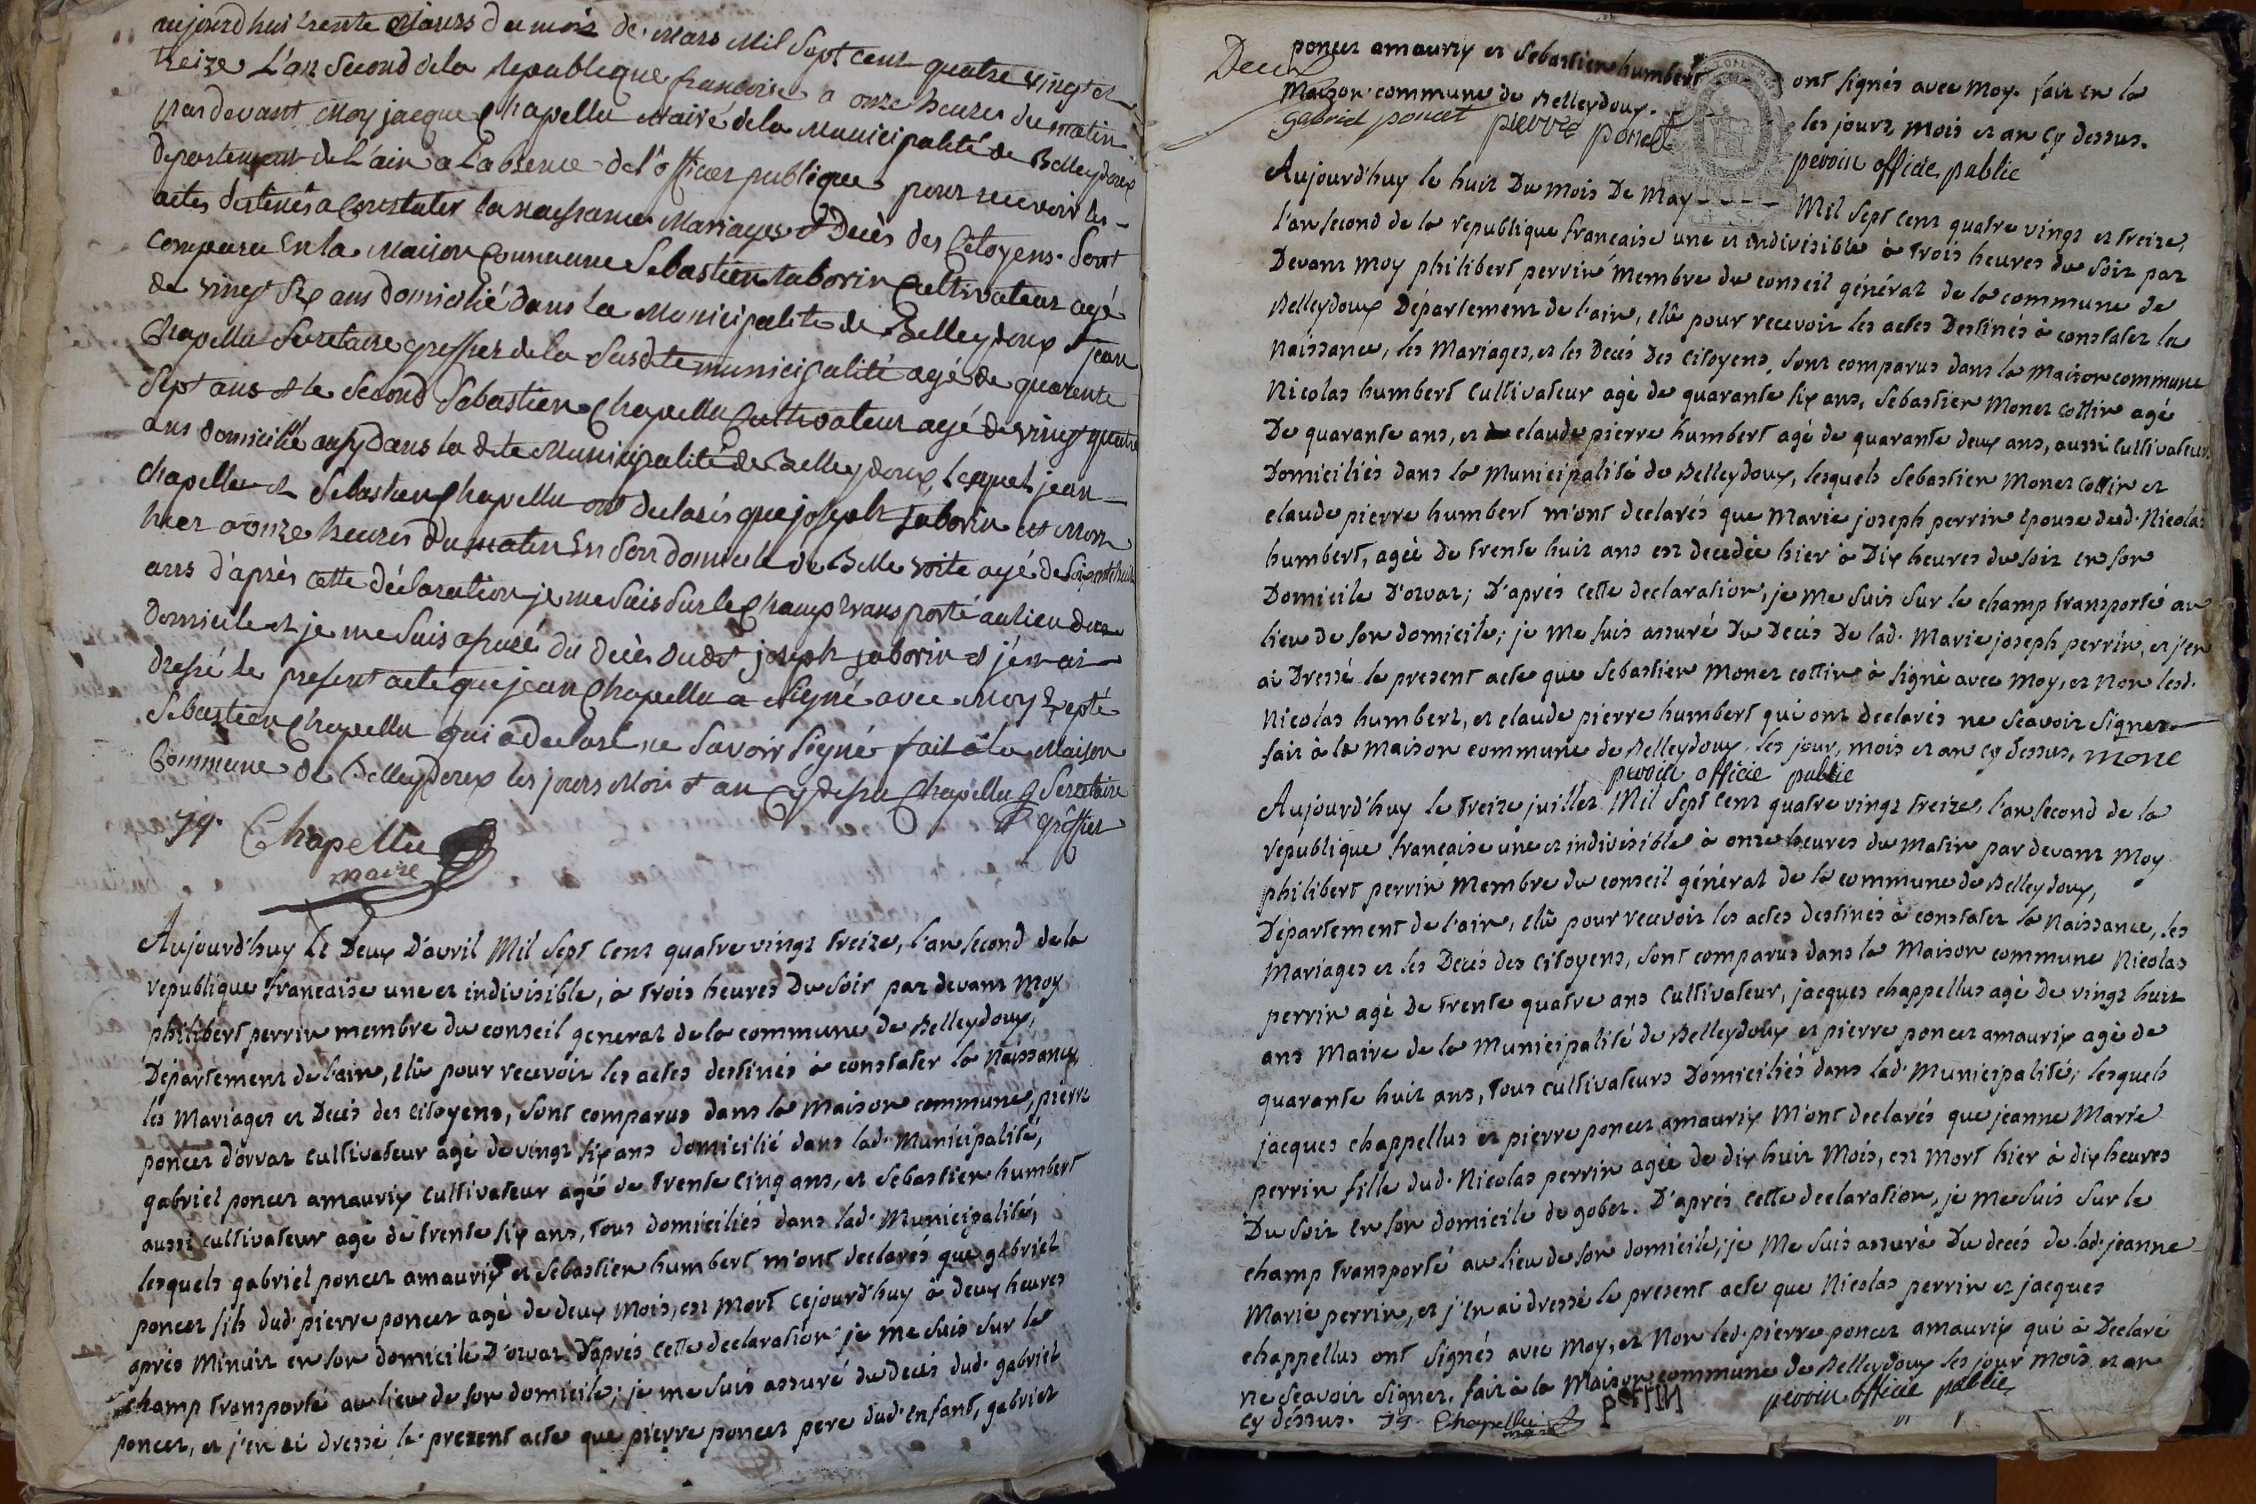 aujourdhuy trente Mars du mois de Mars Mil Sept Cent quatre vingt et
treize L'an Second de la republeque francoise a onze heures du matin
par devant Moy jacque Chapellu Maire de la Municipalité de Belleydoux
departement de L'ain a L'absence de L'officier publique pour recevoir les
actes destinés a Constater la naissance Mariages & Decès des Citoyens. Sont
comparu En la Maison Commune Sebastien taborin Cultivateur agé
de vingt six ans domicilié dans la Municipalité de Belleydoux & jean
Chapellu Secretaire greffier de la Susdite municipalité agé de quarente
Sept ans & le Second Sebastien Chapellu Cultivateur agé de vingt quatre
ans domicilié ausy dans la dite Municipalité de Belleydoux, lesquel jean
Chapellu et Sebastien Chapellu ont declarés que joseph taborin est mort
hier a onze heures du matin En son domicile de Belle voite agé de soixante huit
ans d'après cette déclaration je me suis sur le Champ transporté au lieu du
domicile et je me suis assuré du decès dudt joseph taborin & j'en ai
dressé le present acte que jean Chapellu a signé avec Moy Excepté
Sebastien Chapellu qui a declaré ne savoir signé fait a la Maison
Commune de Belleydoux les jours Mois & an Cy dessu Chapellu Secretaire
greffier
Jq. Chapellu
maire
Aujourd'huy le Deux D'avril Mil sept cent quatre vingt treize, l'an second de la
republique francaise une et indivisible, à trois heures Du soir par devant moy
philibert perrin membre du conseil general de la commune de Belleydoux,
Département de l'ain, elû pour recevoir les actes destinés à constater la Naissance,
les Mariages et Decés des citoyens, sont comparus dans la maison commune, pierre
poncet d'orvaz cultivateur agé de vingt six ans domicilié dans lad. Municipalité,
gabriel poncet amauriy cultivateur agé de trente cinq ans, et sebastien humbert
aussi cultivateur agé de trente six ans, tous domiciliés dans lad. Municipalité,
lesquels gabriel poncet amauriy et sebastien humbert m'ont declarés que gabriel
poncet fils dud. pierre poncet agé de deux mois, est mort cejourd'huy à deux heures
après minuit en son domicile D'orvaz, D'aprés cette declaration je me suis sur le
champ transporté au lieu de son domicile; je me suis assuré du decés dud. gabriel
poncet, et j'en ai dressé le present acte que pierre poncet pere dud. enfant, gabriel
Deux
poncet amauriy et sebastien humbert ont signés avec moy. fait en la
Maison commune de Belleydoux. les jours mois et an cy dessus.
gabriel poncet pierre poncet perrin officié public
Aujourd'huy le huit Du mois De May - - - - Mil sept cent quatre vingt et treize,
l'an second de la republique francaise une et indivisible à trois heures du soir par
Devant moy philibert perrin membre du conseil général de la commune de
Belleydoux Département de l'ain, elû pour recevoir les actes Destinés à constater la
Naissance, les Mariages, et les Decés Des citoyens, sont comparus dans la maison commune
Nicolas humbert cultivateur agé de quarante six ans, sebastien Monet cottin agé
De quarante ans, et claude pierre humbert agé de quarante deux ans, aussi cultivateurs
Domiciliés dans la Municipalité de Belleydoux, lesquels sebastien Monet cottin et
claude pierre humbert m'ont declarés que Marie joseph perrin epouse dud. Nicolas
humbert, agée De trente huit ans est decedée hier à Dix heures du soir en son
Domicile D'orvaz; D'aprés cette declaration, je me suis sur le champ transporté au
lieu de son domicile; je me suis assuré Du Decés De lad. Marie joseph perrin, et j'en
ai Dressé le present acte que sebastien Monet cottin à signé avec moy, et non lesd.
Nicolas humbert, et claude pierre humbert qui ont declarés ne sçavoir signer
fait à la maison commune de Belleydoux les jour, mois et an cy dessus, mone
perrin officié public
Aujourd'huy le treize juillet Mil sept cent quatre vingt treize, l'an second de la
republique francaise une et indivisible à onze heures du matin par devant moy
philibert perrin Membre du conseil général de la commune de Belleydoux,
Département de l'ain, elû pour recevoir les actes destinés à constater la Naissance, les
Mariages et les Decés des citoyens, sont comparus dans la Maison commune Nicolas
perrin agé De trente quatre ans cultivateur, jacques chappellus agé De vingt huit
ans Maire de la Municipalité de Belleydoux et pierre poncet amauriy agé de
quarante huit ans, tous cultivateurs Domiciliés dans lad. Municipalité; lesquels
jacques chappellus et pierre poncet amauriy m'ont declarés que jeanne Marie
perrin fille dud. Nicolas perrin agée de dix huit Mois, est mort hier à dix heures
Du soir en son domicile de gobet. D'aprés cette declaration, je me suis sur le
champ transporté au lieu de son domicile; je me suis assuré Du decés de lad. jeanne
Marie perrin, et j'en ai dressé le present acte que Nicolas perrin et jacques
chappellus ont signés avec moy, et non led. pierre poncet amauriy qui à Declaré
ne sçavoir signer. fait à la Maison commune de Belleydoux les jour mois et an
cy dessus. Jq. Chapellu maire perrin perrin officié public